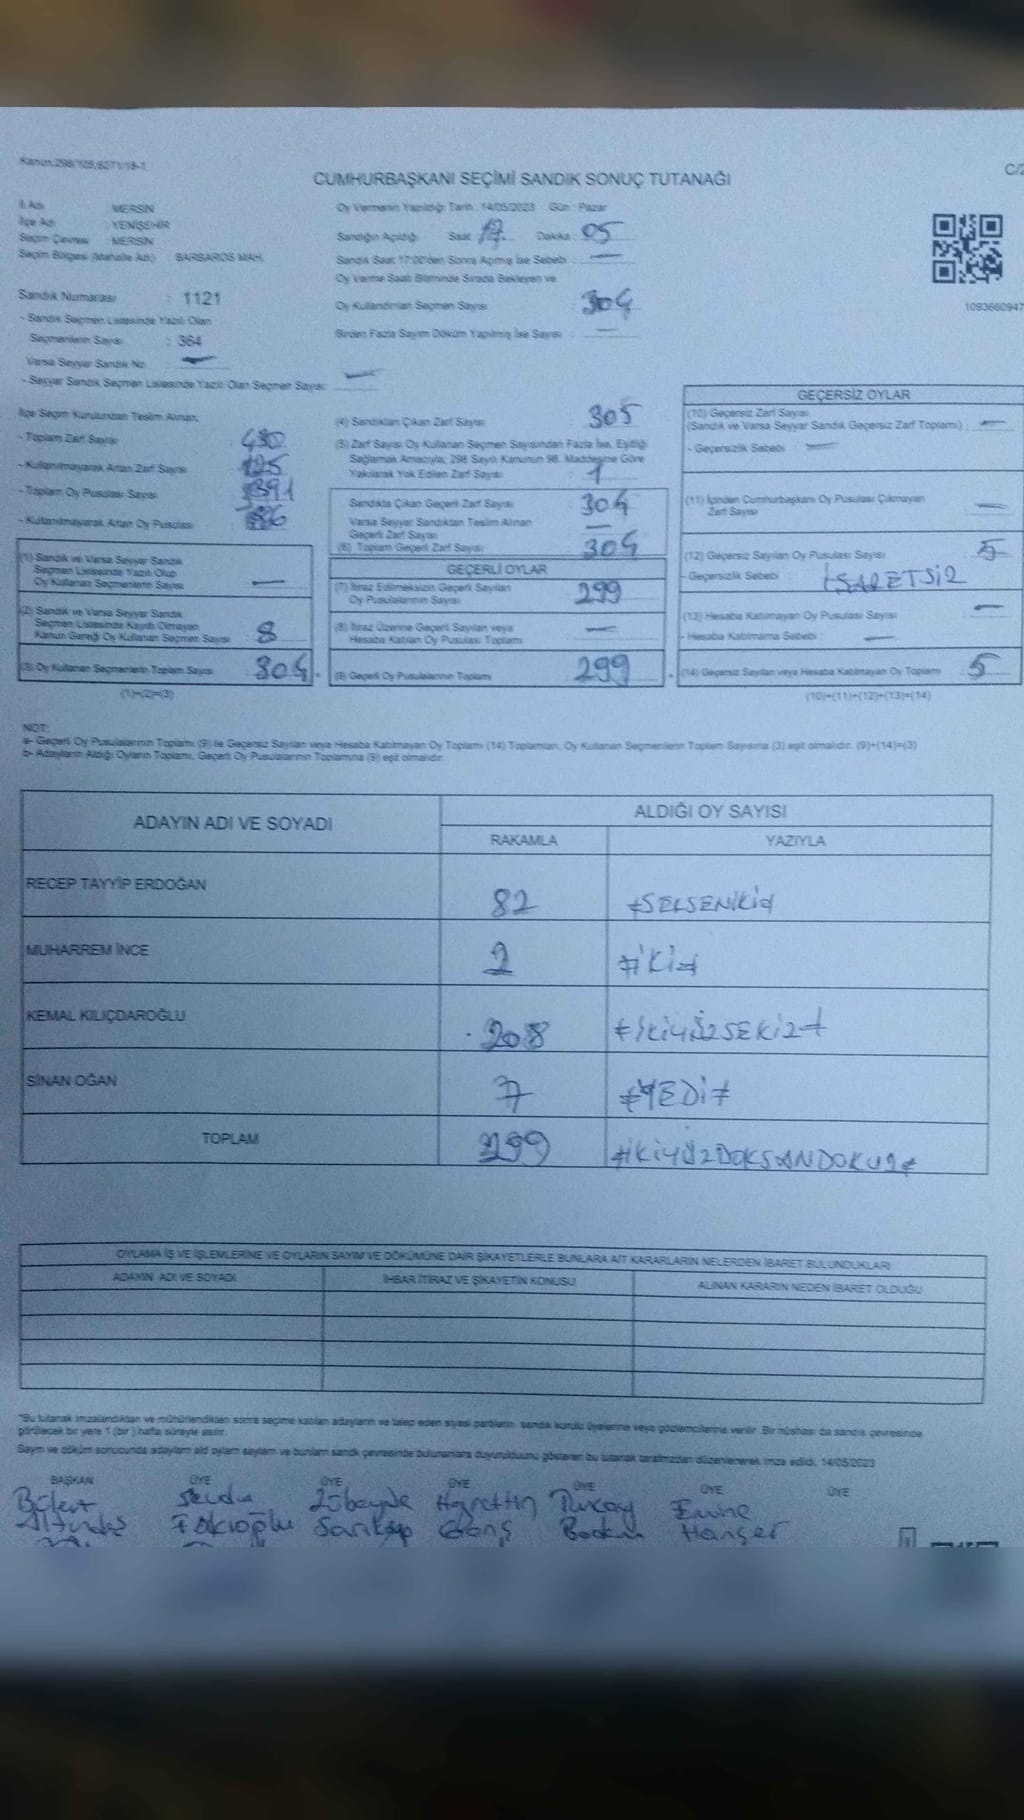 Kanun:298/105,6271/18-1
C/2
CUMHURBAŞKANI SEÇİMİ SANDIK SONUÇ TUTANAĞI
İl Adı : MERSİN
İlçe Adı : YENİŞEHİR
Seçim Çevresi : MERSİN
Seçim Bölgesi (Mahalle Adı) : BARBAROS MAH.
Sandık Numarası : 1121
- Sandık Seçmen Listesinde Yazılı Olan
Seçmenlerin Sayısı : 364
Varsa Seyyar Sandık No : —
- Seyyar Sandık Seçmen Listesinde Yazılı Olan Seçmen Sayısı: —
Oy Vermenin Yapıldığı Tarih : 14/05/2023 Gün : Pazar
Sandığın Açıldığı Saat : 17 Dakika : 05
Sandık Saat 17:00'den Sonra Açılmış İse Sebebi : —
Oy Verme Saati Bitiminde Sırada Bekleyen ve
Oy Kullandırılan Seçmen Sayısı : 304
Birden Fazla Sayım Döküm Yapılmış İse Sayısı : —
1093660947
İlçe Seçim Kurulundan Teslim Alınan;
- Toplam Zarf Sayısı : 430
- Kullanılmayarak Artan Zarf Sayısı : 125
- Toplam Oy Pusulası Sayısı
- Kullanılmayarak Artan Oy Pusulası
(1) Sandık ve Varsa Seyyar Sandık
Seçmen Listesinde Yazılı Olup
Oy Kullanan Seçmenlerin Sayısı : —
(2) Sandık ve Varsa Seyyar Sandık
Seçmen Listesinde Kayıtlı Olmayan
Kanun Gereği Oy Kullanan Seçmen Sayısı : 8
(3) Oy Kullanan Seçmenlerin Toplam Sayısı : 304
(1)+(2)=(3)
(4) Sandıktan Çıkan Zarf Sayısı : 305
(5) Zarf Sayısı Oy Kullanan Seçmen Sayısından Fazla İse, Eşitliği
Sağlamak Amacıyla; 298 Sayılı Kanunun 98. Maddesine Göre
Yakılarak Yok Edilen Zarf Sayısı : 1
Sandıkta Çıkan Geçerli Zarf Sayısı : 304
Varsa Seyyar Sandıktan Teslim Alınan
Geçerli Zarf Sayısı : —
(6) Toplam Geçerli Zarf Sayısı : 304
GEÇERLİ OYLAR
(7) İtiraz Edilmeksizin Geçerli Sayılan
Oy Pusulalarının Sayısı : 299
(8) İtiraz Üzerine Geçerli Sayılan veya
Hesaba Katılan Oy Pusulası Toplamı : —
(9) Geçerli Oy Pusulalarının Toplamı : 299
GEÇERSİZ OYLAR
(10) Geçersiz Zarf Sayısı
(Sandık ve Varsa Seyyar Sandık Geçersiz Zarf Toplamı) : —
- Geçersizlik Sebebi : —
(11) İçinden Cumhurbaşkanı Oy Pusulası Çıkmayan
Zarf Sayısı : —
(12) Geçersiz Sayılan Oy Pusulası Sayısı : 5
- Geçersizlik Sebebi : İŞARETSİZ
(13) Hesaba Katılmayan Oy Pusulası Sayısı : —
- Hesaba Katılmama Sebebi : —
(14) Geçersiz Sayılan veya Hesaba Katılmayan Oy Toplamı : 5
(10)+(11)+(12)+(13)=(14)
NOT:
a- Geçerli Oy Pusulalarının Toplamı (9) ile Geçersiz Sayılan veya Hesaba Katılmayan Oy Toplamı (14) Toplamları, Oy Kullanan Seçmenlerin Toplam Sayısına (3) eşit olmalıdır. (9)+(14)=(3)
b- Adayların Aldığı Oyların Toplamı, Geçerli Oy Pusulalarının Toplamına (9) eşit olmalıdır.
ADAYIN ADI VE SOYADI ALDIĞI OY SAYISI
RAKAMLA YAZIYLA
RECEP TAYYİP ERDOĞAN 82 #SEKSENİKİ#
MUHARREM İNCE 2 #İKİ#
KEMAL KILIÇDAROĞLU 208 #İKİYÜZSEKİZ#
SİNAN OĞAN 7 #YEDİ#
TOPLAM 299 #İKİYÜZDOKSANDOKUZ#
OYLAMA İŞ VE İŞLEMLERİNE VE OYLARIN SAYIM VE DÖKÜMÜNE DAİR ŞİKAYETLERLE BUNLARA AİT KARARLARIN NELERDEN İBARET BULUNDUKLARI
ADAYIN ADI VE SOYADI İHBAR İTİRAZ VE ŞİKAYETİN KONUSU ALINAN KARARIN NEDEN İBARET OLDUĞU
*Bu tutanak imzalandıktan ve mühürlendikten sonra seçime katılan adayların ve talep eden siyasi partilerin sandık kurulu üyelerine veya gözlemcilerine verilir. Bir nüshası da sandık çevresinde
görülecek bir yere 1 (bir) hafta süreyle asılır.
Sayım ve döküm sonucunda adayların aldığı oyların sayıları ve bunların sandık çevresinde bulunanlara duyurulduğunu gösteren bu tutanak tarafımızdan düzenlenerek imza edildi. 14/05/2023
BAŞKAN ÜYE ÜYE ÜYE ÜYE ÜYE ÜYE
Bülent Zübeyde Hayrettin Emine
Hanger